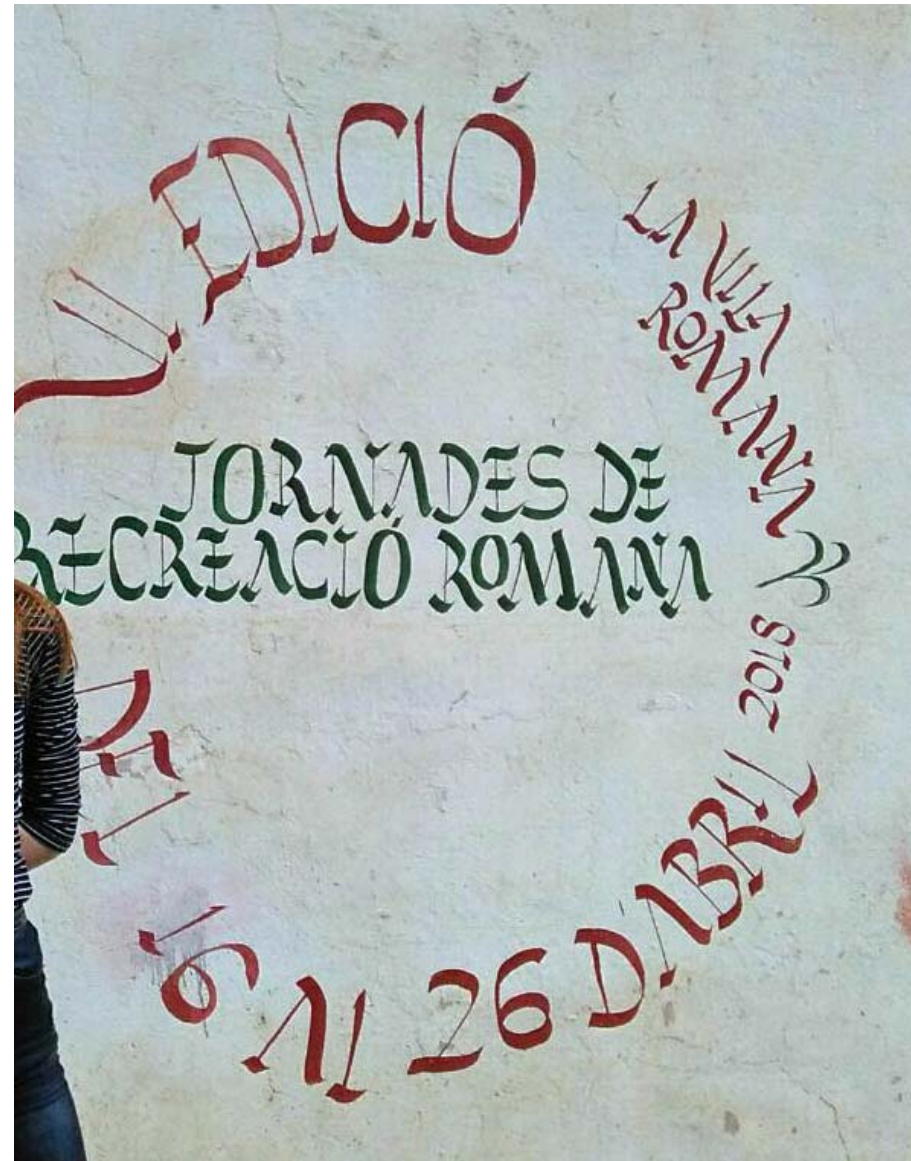 VI. EDICIÓ
LA VILA
ROMANA
JORNADES DE
RECREACIÓ ROMANA
DEL 16 AL 26 D'ABRIL 2018